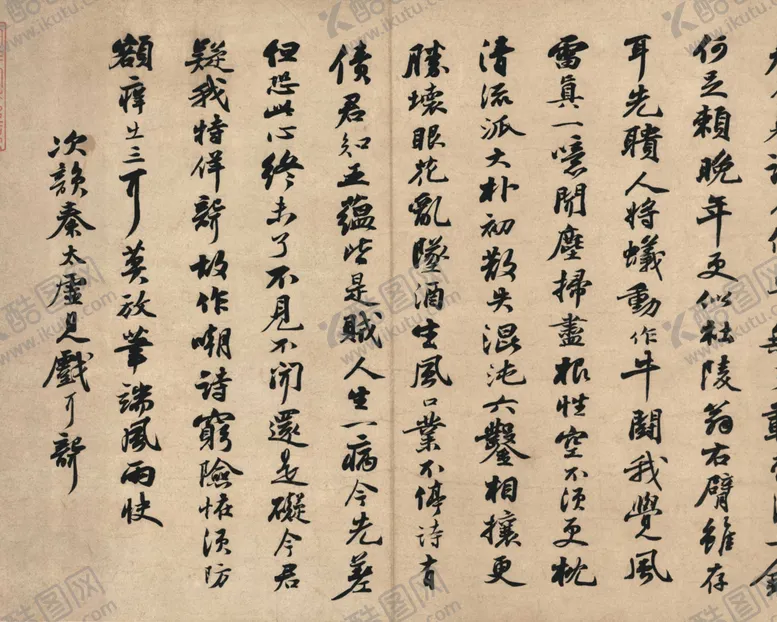 何足賴晚年更似杜陵翁右臂雖存
耳先聵人将蟻動作牛鬪我覺風
雷真一噫聞塵掃盡根性空不須更枕
清流派大朴初散失混沌六鑿相攘更
勝壞眼花亂墜酒生風口業不停詩有
債君知五蘊皆是賊人生一病今先差
但恐此心終未了不見不聞還是礙今君
疑我特佯聾故作嘲詩窮險恠須防
額痒出三耳莫放筆端風雨快
次韻秦太虛見戲耳聾
酷图网
www.ikutu.com